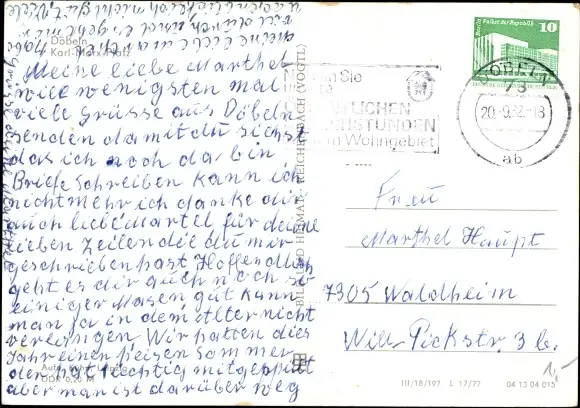 Döbeln
Karl-Marx-Platz
Meine liebe Marthel
will wenigsten mal
viele Grüsse aus Döbeln
senden damit du siehst
das ich noch da bin
Briefe Schreiben kann ich
nicht mehr ich danke dir
auch liebe Martel für deine
lieben Zeilen die du mir
geschrieben hast Hoffendlich
geht es dir auch noch so
einiger Masen gut kann
man ja in dem Alter nicht
verlangen Wir hatten dies
Jahr einen heisen Sommer
der hat tichtig mitgespielt
aber man ist darüber weg
DDR 0,20 M
BILD UND HEIMAT REICHENBACH (VOGTL)
Berlin, Palast der Republik
10
DÖBELN
73
20.-9.82.-18
ab
Frau
Marthel Haupt
7305 Waldheim
Wilh Pickstr. 3 b.
III/18/197 L 17/77
04 13 04 015
1,-